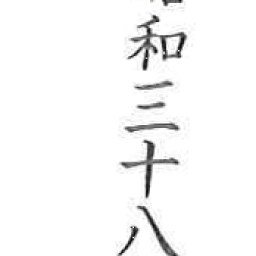 和三十八